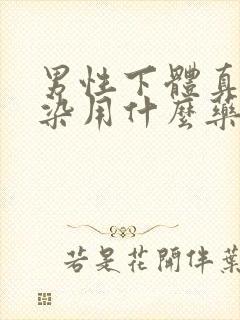 男性下體真
染用什麼藥
若是花開伴葉